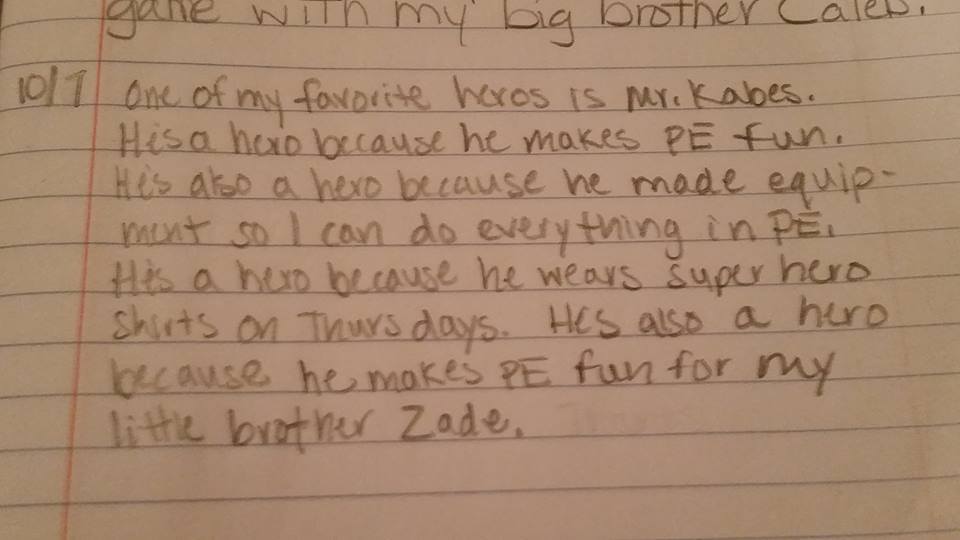 game with my big brother Caleb.
10/7 One of my favorite heros is Mr. Kabes.
His a hero because he makes PE fun.
He's also a hero because he made equip-
ment so I can do everything in PE.
He's a hero because he wears super hero
shirts on Thursdays. He's also a hero
because he makes PE fun for my
little brother Zade.